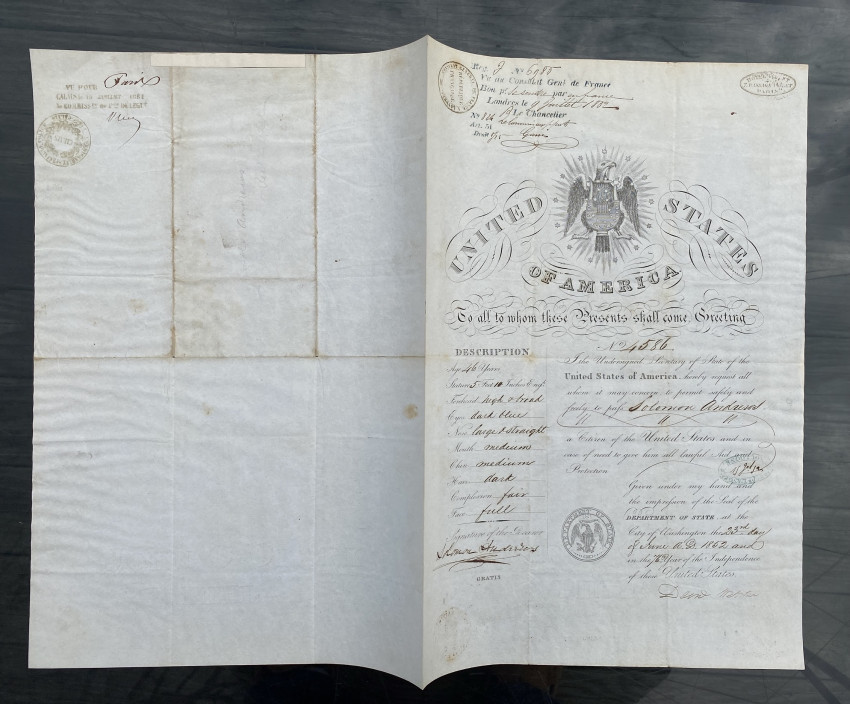 Paris
CALAIS
Reg. 9 No 6985
Vu au Consulat Genl de France
Bon pr se rendre par
Londres le 9 Juillet 1852
No 144 Le Chancelier
UNITED STATES
OF AMERICA
To all to whom these Presents shall come Greeting
No 4586
DESCRIPTION
Age 46 Years
Stature 5 Feet 10 Inches Engl.
Forehead high & broad
Eyes dark blue
Nose large & straight
Mouth medium
Chin medium
Hair dark
Complexion fair
Face full
Signature of the Bearer
GRATIS
I the Undersigned, Secretary of State of the
United States of America, hereby request all
whom it may concern to permit safely and
freely to pass Solomon Andrews
a Citizen of the United States and in
case of need to give him all lawful Aid and
Protection
Given under my hand and
the impression of the Seal of the
DEPARTMENT OF STATE at the
City of Washington the 23rd day
of June A.D. 1852 and
in the 76 Year of the Independence
of these United States
DEPARTMENT OF STATE